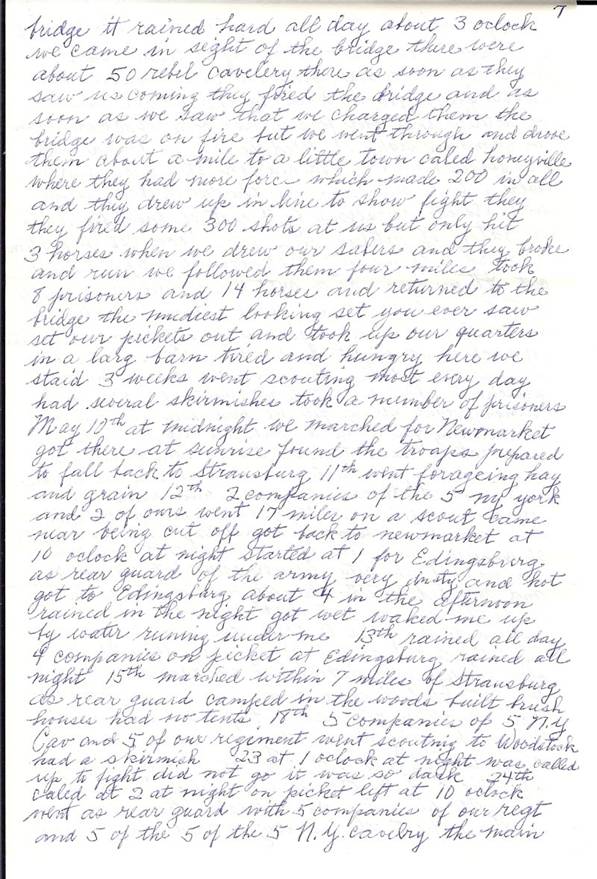 7
bridge it rained hard all day about 3 oclock
we came in sight of the bridge there were
about 50 rebel cavelery there as soon as they
saw us coming they fired the bridge and as
soon as we saw that we charged them the
bridge was on fire but we went through and drove
them about a mile to a little town caled honeyville
where they had more forc which made 200 in all
and they drew up in line to show fight they
they fired some 300 shots at us but only hit
3 horses when we drew our sabers and they broke
and run we followed them four miles took
8 prisoners and 14 horses and returned to the
bridge the mudiest looking set you ever saw
set our pickets out and took up our quarters
in a larg barn tired and hungry here we
staid 3 weeks went scouting most every day
had several skirmishes took a number of prisoners
May 10th at midnight we marched for Newmarket
got there at sunrise found the troops prepared
to fall back to Strausburg 11th went forageing hay
and grain 12th 2 companies of the 5 ny york
and 2 of ours went 17 miles on a scout came
near being cut off got back to newmarket at
10 oclock at night started at 1 for Edingsburg
as rear guard of the army very dusty and hot
got to Edingsburg about 4 in the afternoon
rained in the night got wet waked me up
by water runing under me 13th rained all day
4 companies on picket at Edingsburg rained all
night 15th marched within 7 miles of Strausburg
as rear guard camped in the woods built brush
houses had no tents 18th 5 companies of 5 N.Y
Cav and 5 of our regiment went scouting to Woodstock
had a skirmish 23 at 1 oclock at night was called
up to fight did not go it was so dark 24th
caled at 2 at night on picket left at 10 oclock
went as rear guard with 5 companies of our regt
and 5 of the 5 of the 5 N.Y. cavelry the main